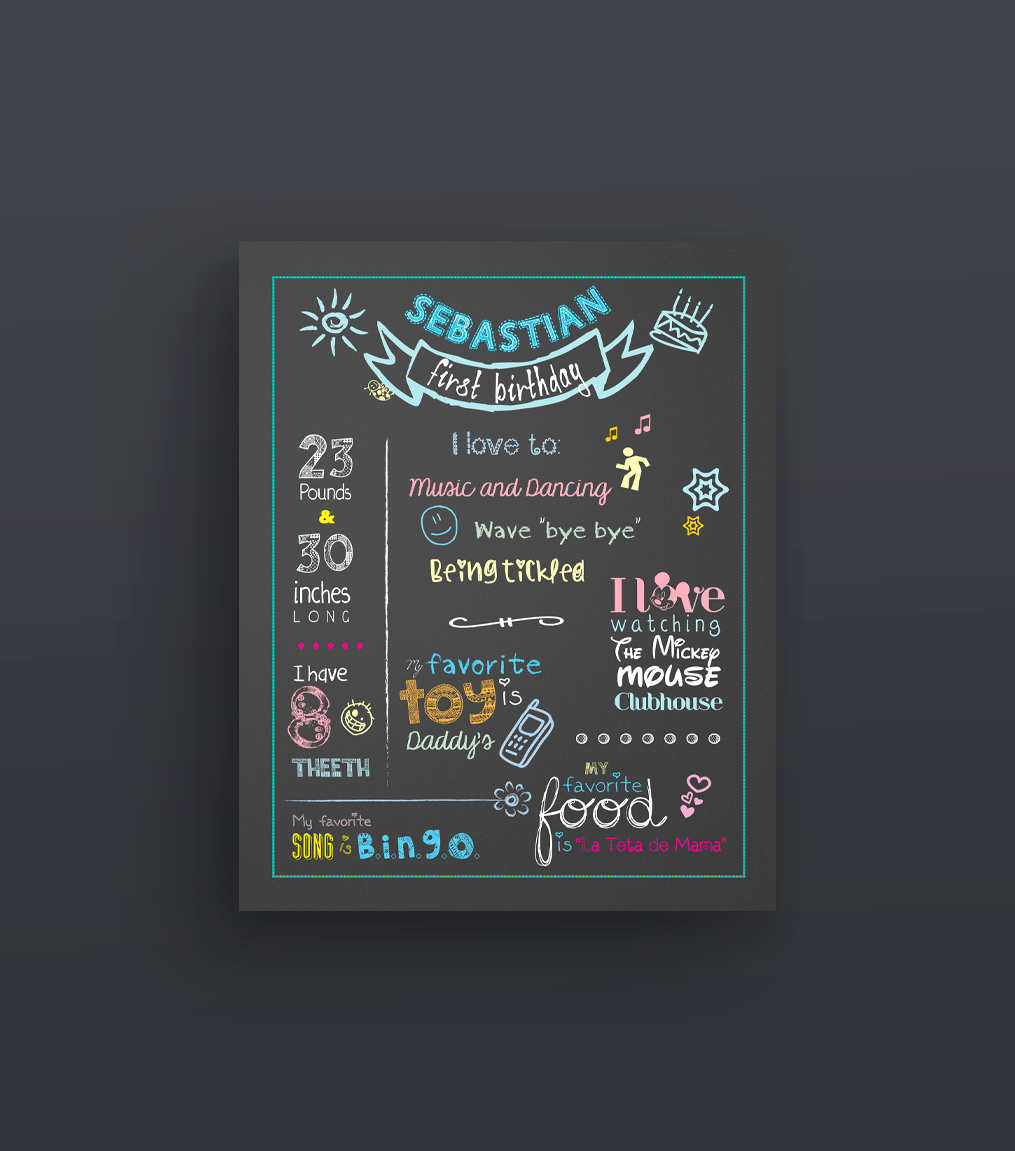 SEBASTIAN
first birthday
23
Pounds
&
30
inches
LONG
I have
8
THEETH
I love to:
Music and Dancing
Wave "bye bye"
Being tickled
My favorite
toy is
Daddy's
I love
watching
The Mickey
mouse
Clubhouse
My favorite
SONG is B.i.n.g.o.
MY
favorite
food
is "La Teta de Mama"